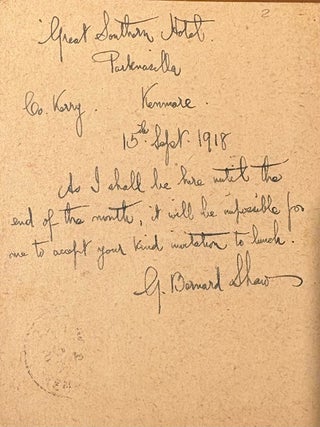 Great Southern Hotel.
Parknasilla
Co. Kerry. Kenmare.
15th Sept. 1918
As I shall be here until the
end of the month, it will be impossible for
me to accept your kind invitation to lunch.
G. Bernard Shaw